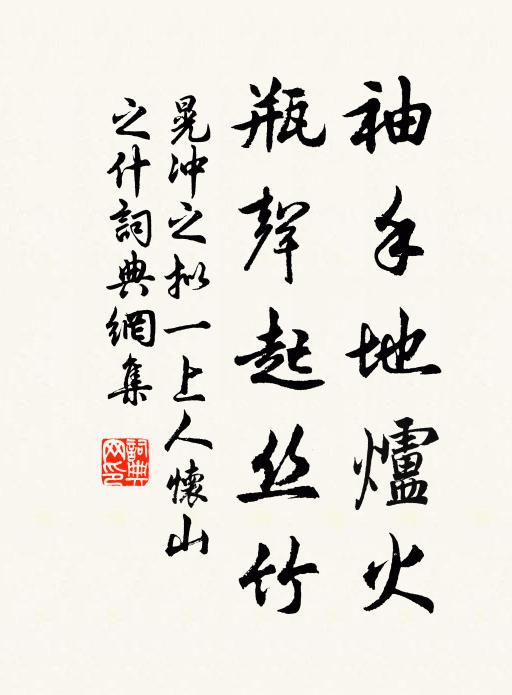 袖手地爐火
瓶聲起丝竹
晁冲之拟一上人懷山
之什詞典網集
詞典
网印